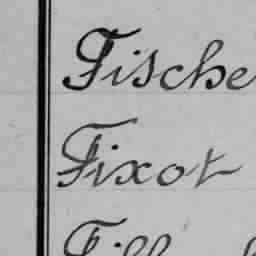 Fische
Fixot